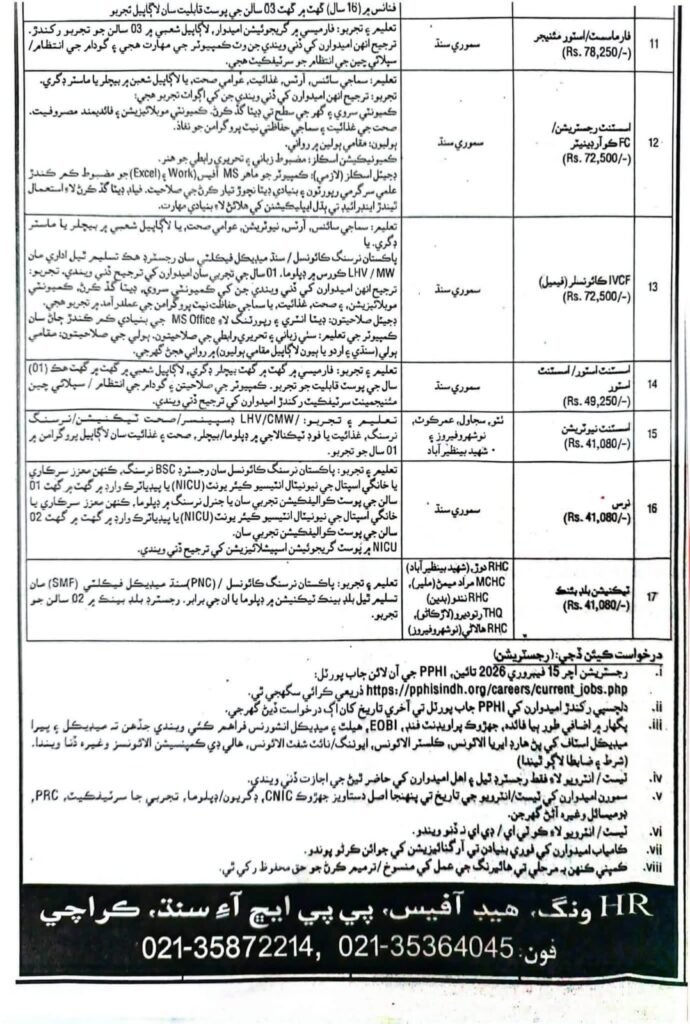 فنانس ۾ (16 سال) گهٽ ۾ گهٽ 03 سالن جي پوسٽ قابليت سان لاڳاپيل تجربو
11
فارماسسٽ/اسٽور مئنيجر
(Rs. 78,250/-)
سموري سنڌ
تعليم ۽ تجربو: فارميسي ۾ گريجوئيشن اميدوار، لاڳاپيل شعبي ۾ 03 سالن جو تجربو رکندڙ.
ترجيح انهن اميدوارن کي ڏني ويندي جن وٽ ڪمپيوٽر جي مهارت هجي ۽ گودام جي انتظام/
سپلائي چين جي انتظام جو سرٽيفڪيٽ هجي.
12
اسسٽنٽ رجسٽريشن/
FC ڪوآرڊينيٽر
(Rs. 72,500/-)
سموري سنڌ
تعليم: سماجي سائنس، آرٽس، غذائيت، عوامي صحت، يا لاڳاپيل شعبن ۾ بيچلر يا ماسٽر ڊگري.
تجربو: ترجيح انهن اميدوارن کي ڏني ويندي جن کي اڳواٽ تجربو هجي:
ڪميونٽي سروي ۽ گهر جي سطح تي ڊيٽا گڏ ڪرڻ. ڪميونٽي موبلائيزيشن ۽ فائديمند مصروفيت.
صحت جي غذائيت ۽ سماجي حفاظتي نيٽ پروگرامن جو نفاذ.
ٻوليون: مقامي ٻولين ۾ رواني.
ڪميونيڪيشن اسڪلز: مضبوط زباني ۽ تحريري رابطي جو هنر.
ڊجيٽل اسڪلز (لازمي): ڪمپيوٽر جو ماهر MS آفيس (Work ۽ Excel) جو مضبوط ڪم ڪندڙ
علمي سرگرمي رپورٽون ۽ بنيادي ڊيٽا نچوڙ تيار ڪرڻ جي صلاحيت. فيلڊ ڊيٽا گڏ ڪرڻ لاءِ استعمال
ٿيندڙ اينڊرائيڊ تي ٻڌل ايپليڪيشنن کي هلائڻ لاءِ بنيادي مهارت.
13
IVCF ڪائونسلر (فيميل)
(Rs. 72,500/-)
سموري سنڌ
تعليم: سماجي سائنس، آرٽس، نيوٽريشن، عوامي صحت، يا لاڳاپيل شعبن ۾ بيچلر يا ماسٽر
ڊگري. يا
پاڪستان نرسنگ ڪائونسل / سنڌ ميڊيڪل فيڪلٽي سان رجسٽرڊ هڪ تسليم ٿيل اداري مان
LHV / MW ڪورس ۾ ڊپلوما. 01 سال جي تجربي سان اميدوارن کي ترجيح ڏني ويندي. تجربو:
ترجيح انهن اميدوارن کي ڏني ويندي جن کي ڪميونٽي سروي، ڊيٽا گڏ ڪرڻ، ڪميونٽي
موبلائيزيشن، ۽ صحت، غذائيت، يا سماجي حفاظت نيٽ پروگرامن جي عملدرآمد ۾ تجربو هجي.
ڊجيٽل صلاحيتون: ڊيٽا انٽري ۽ رپورٽنگ لاءِ MS Office جي بنيادي ڪم ڪندڙ ڄاڻ سان
ڪمپيوٽر جي تعليم: سٺي زباني ۽ تحريري رابطي جي صلاحيتون. ٻولي جي صلاحيتون: مقامي
ٻولي (سنڌي ۽ اردو يا ٻيون لاڳاپيل مقامي ٻوليون) ۾ رواني هجڻ گهرجي.
14
اسسٽنٽ اسٽور / اسسٽنٽ
اسٽور
(Rs. 49,250/-)
سموري سنڌ
تعليم ۽ تجربو: فارميسي ۾ گهٽ ۾ گهٽ بيچلر ڊگري، لاڳاپيل شعبي ۾ گهٽ ۾ گهٽ هڪ (01)
سال جي پوسٽ قابليت جو تجربو. ڪمپيوٽر جي صلاحيتن ۽ گودام جي انتظام / سپلائي چين
مئنيجمينٽ سرٽفڪيٽ رکندڙ اميدوارن کي ترجيح ڏني ويندي.
15
اسسٽنٽ نيوٽريشن
(Rs. 41,080/-)
ٺٽو، سجاول، عمرڪوٽ،
نوشهروفيروز ۽
شهيد بينظيرآباد
تعليم ۽ تجربو: /LHV/CMW ڊسپينسر/صحت ٽيڪنيشن/نرسنگ
نرسنگ، غذائيت يا فوڊ ٽيڪنالاجي ۾ ڊپلوما/بيچلر، صحت ۽ غذائيت سان لاڳاپيل پروگرامن ۾
01 سال جو تجربو.
16
نرس
(Rs. 41,080/-)
سموري سنڌ
تعليم ۽ تجربو: پاڪستان نرسنگ ڪائونسل سان رجسٽرڊ BSC نرسنگ، ڪنهن معزز سرڪاري
يا خانگي اسپتال جي نيونيٽال انٽيسيو ڪيئر يونٽ (NICU) يا پيڊياٽرڪ وارڊ ۾ گهٽ ۾ گهٽ 01
سالن جي پوسٽ ڪواليفڪيشن تجربي سان يا جنرل نرسنگ ۾ ڊپلوما، ڪنهن معزز سرڪاري يا
خانگي اسپتال جي نيونيٽال انٽيسيو ڪيئر يونٽ (NICU) يا پيڊياٽرڪ وارڊ ۾ گهٽ ۾ گهٽ 02
سالن جي پوسٽ ڪواليفڪيشن تجربي سان.
NICU ۾ پوسٽ گريجوئيشن اسپيشلائيزيشن کي ترجيح ڏني ويندي.
17
ٽيڪنيشن بلڊ بئنڪ
(Rs. 41,080/-)
RHC دوڙ، (شهيد بينظيرآباد)
MCHC مراد ميمڻ (ملير)،
RHC نندو (بدين)
THQ رتوديرو (لاڙڪاڻو)،
RHC هالاڻي (نوشهروفيروز)
تعليم ۽ تجربو: پاڪستان نرسنگ ڪائونسل / (PNC)سنڌ ميڊيڪل فيڪلٽي (SMF) سان
تسليم ٿيل بلڊ بينڪ ٽيڪنيشن ۾ ڊپلوما يا ان جي برابر. رجسٽرڊ بلڊ بينڪ ۾ 02 سالن جو
تجربو.
درخواست ڪيئن ڏجي: (رجسٽريشن)
i. رجسٽريشن آچر 15 فيبروري 2026 تائين، PPHI جي آن لائن جاب پورٽل:
https://pphisindh.org/careers/current_jobs.php ذريعي ڪرائي سگهجي ٿي.
ii. دلچسپي رکندڙ اميدوارن کي PPHI جاب پورٽل تي آخري تاريخ کان اڳ درخواست ڏيڻ گهرجي.
iii. پگهار ۾ اضافي طور ٻيا فائدا، جهڙوڪ پراويڊنٽ فنڊ، EOBI، هيلٿ ۽ ميڊيڪل انشورنس فراهم ڪئي ويندي جڏهن ته ميڊيڪل ۽ پيرا
ميڊيڪل اسٽاف کي پڻ هارڊ ايريا الائونس، ڪلسٽر الائونس، ايوننگ/نائٽ شفٽ الائونس، هالي ڊي ڪمپنسيشن الائونسز وغيره ڏنا ويندا.
(شرط ۽ ضابطا لاڳو ٿيندا)
iv. ٽيسٽ / انٽرويو لاءِ فقط رجسٽرڊ ٿيل ۽ اهل اميدوارن کي حاضر ٿيڻ جي اجازت ڏني ويندي.
v. سمورن اميدوارن کي ٽيسٽ/انٽرويو جي تاريخ تي پنهنجا اصل دستاويز جهڙوڪ CNIC، ڊگريون/ڊپلوما، تجربي جا سرٽيفڪيٽ، PRC،
ڊوميسائل وغيره آڻڻ گهرجن.
vi. ٽيسٽ / انٽرويو لاءِ ڪو ٽي اي / ڊي اي نه ڏنو ويندو.
vii. ڪامياب اميدوارن کي فوري بنيادن تي آرگنائيزيشن کي جوائن ڪرڻو پوندو.
viii. ڪمپني ڪنهن به مرحلي تي هائيرنگ جي عمل کي منسوخ / ترميم ڪرڻ جو حق محفوظ رکي ٿي.
HR ونگ، هيڊ آفيس، پي پي ايڇ آءِ سنڌ، ڪراچي
فون: 021-35364045 ,021-35872214